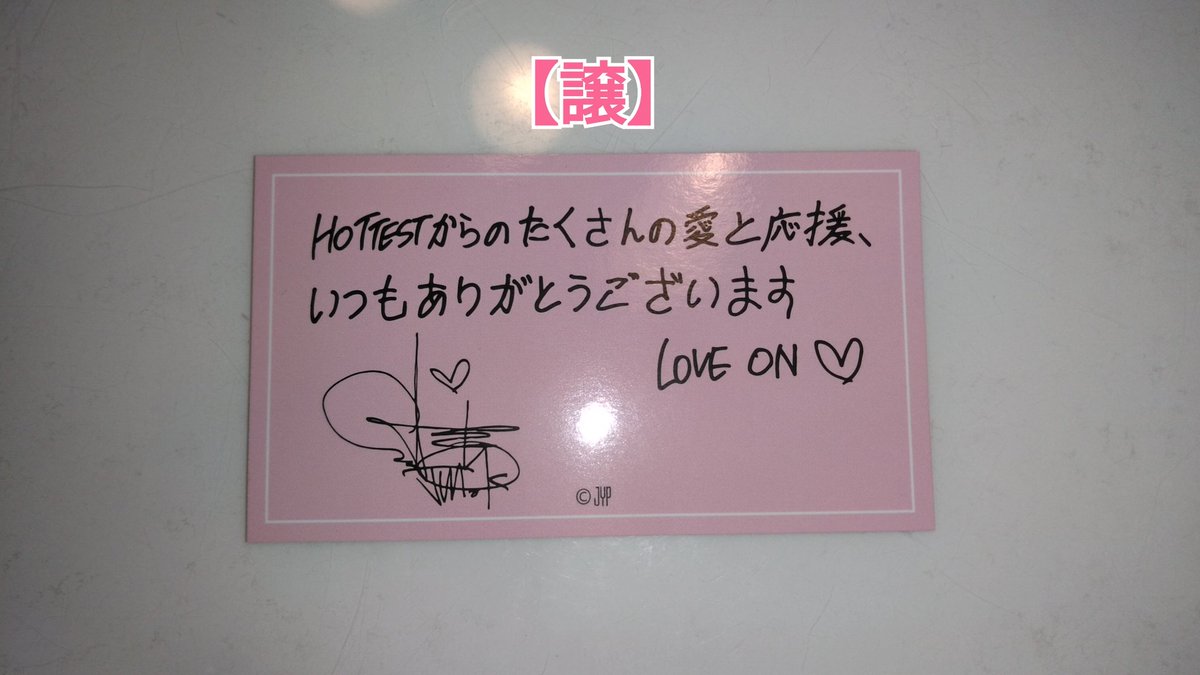 【譲】
HOTTESTからのたくさんの愛と応援、
いつもありがとうございます
LOVE ON ♡
© JYP